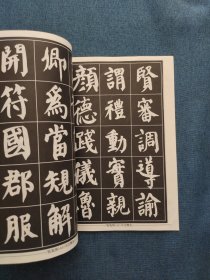 賢審調導諭
謂禮動實親
顏德踐儀魯
卿為當規解
開符國郡服